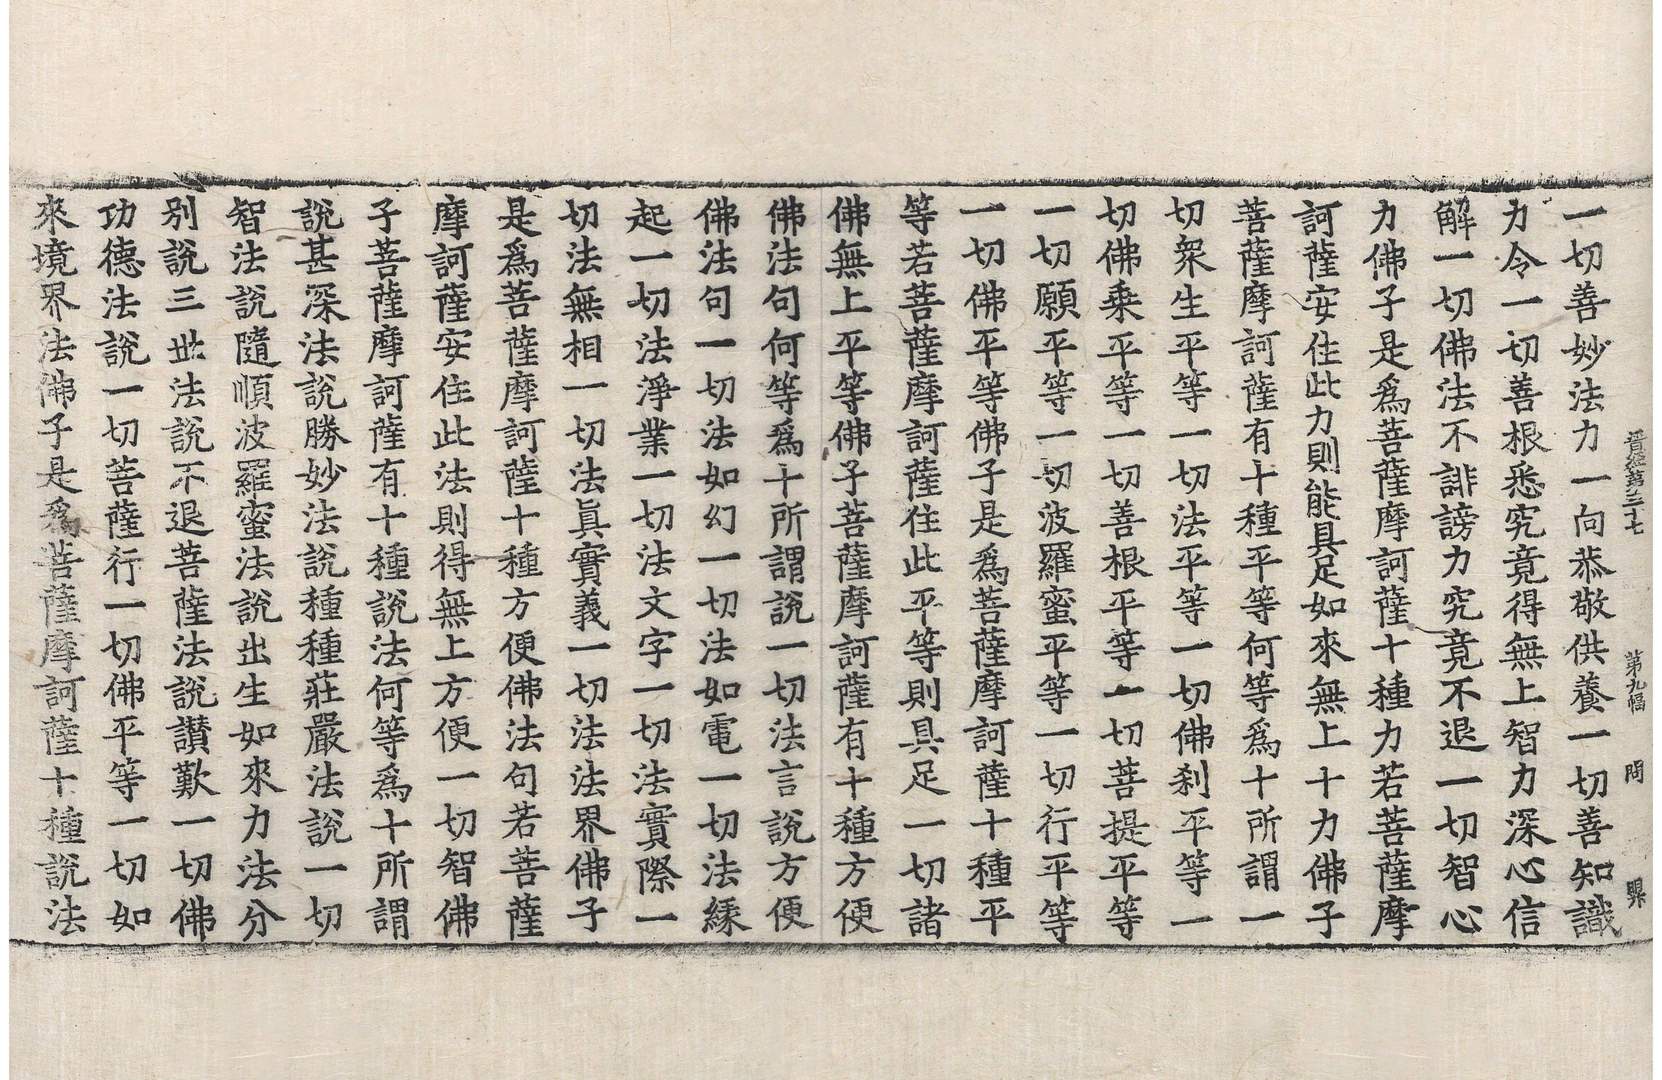 晋經第三十七 第九幅 問
一切善妙法力一向恭敬供養一切善知識
力令一切善根悉究竟得無上智力深心信
解一切佛法不誹謗力究竟不退一切智心
力佛子是爲菩薩摩訶薩十種力若菩薩摩
訶薩安住此力則能具足如來無上十力佛子
菩薩摩訶薩有十種平等何等爲十所謂一
切衆生平等一切法平等一切佛刹平等一
切佛乘平等一切善根平等一切菩提平等
一切願平等一切波羅蜜平等一切行平等
一切佛平等佛子是爲菩薩摩訶薩十種平
等若菩薩摩訶薩住此平等則具足一切諸
佛無上平等佛子菩薩摩訶薩有十種方便
佛法句何等爲十所謂說一切法言說方便
佛法句一切法如幻一切法如電一切法緣
起一切法淨業一切法文字一切法實際一
切法無相一切法眞實義一切法法界佛子
是爲菩薩摩訶薩十種方便佛法句若菩薩
摩訶薩安住此法則得無上方便一切智佛
子菩薩摩訶薩有十種說法何等爲十所謂
說甚深法說勝妙法說種種莊嚴法說一切
智法說隨順波羅蜜法說出生如來力法分
別說三世法說不退菩薩法說讚歎一切佛
功德法說一切菩薩行一切佛平等一切如
來境界法佛子是爲菩薩摩訶薩十種說法